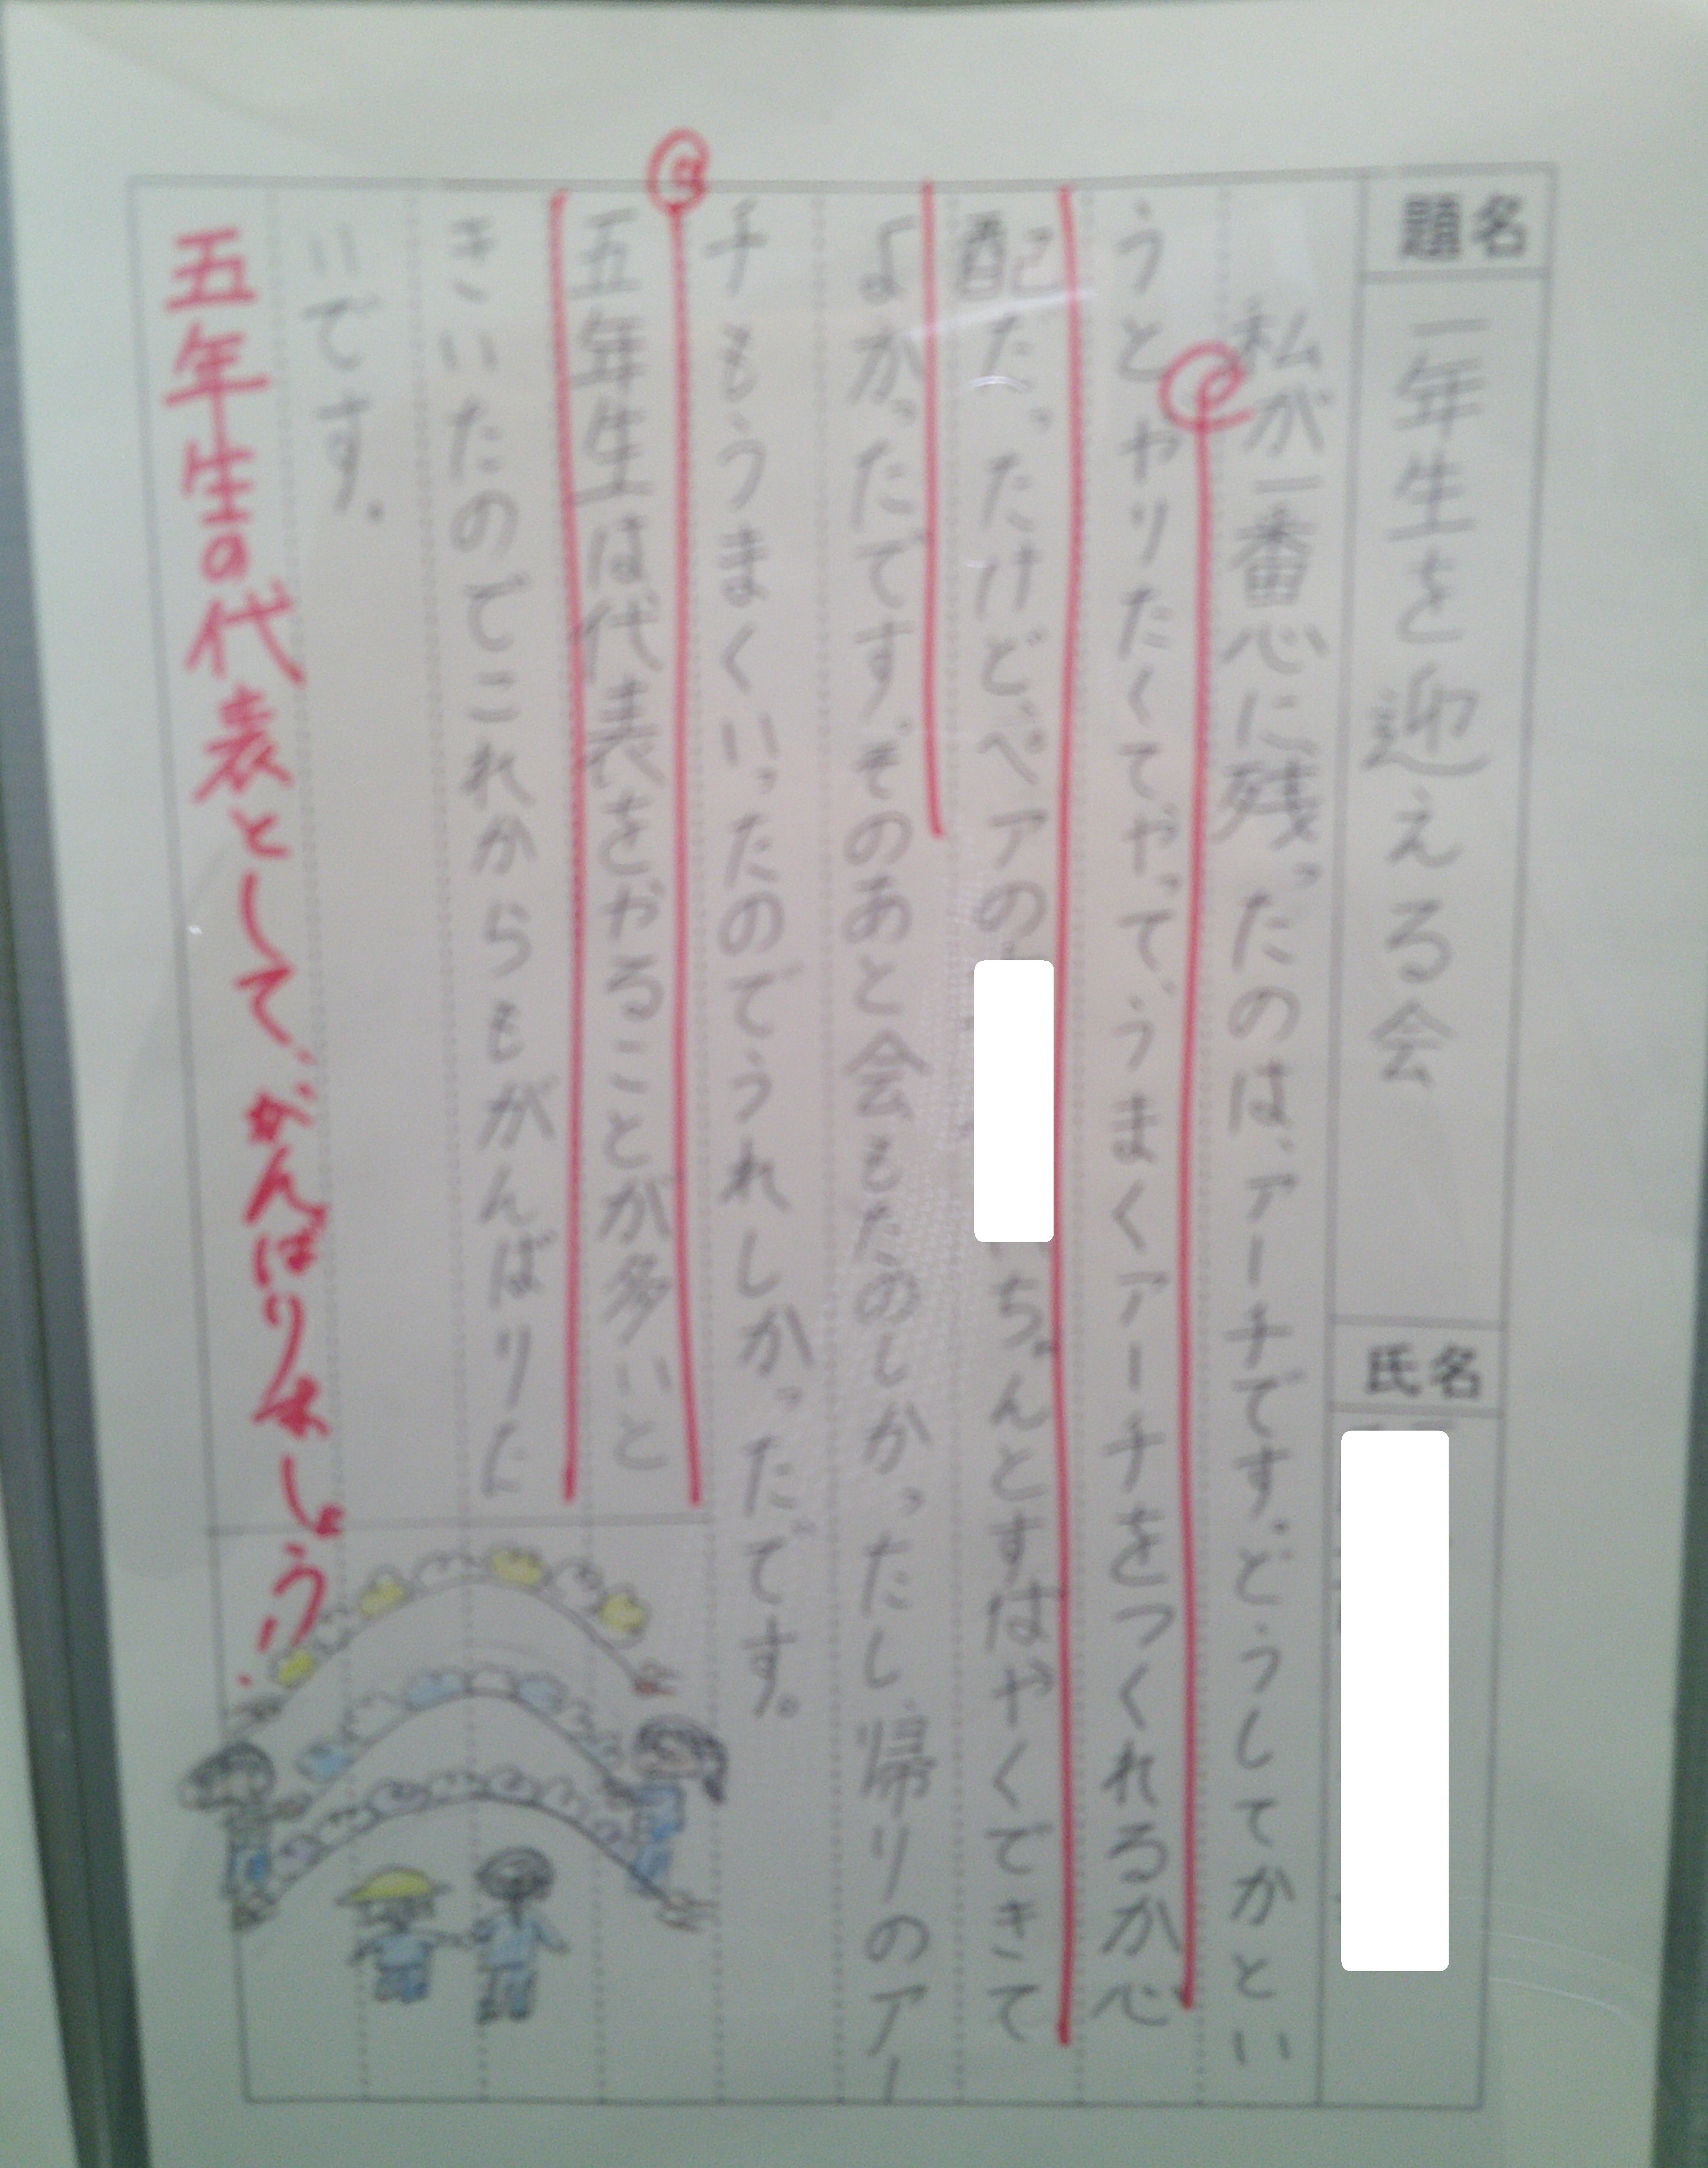 題名
一年生を迎える会
氏名
私が一番心に残ったのは、アーチです。どうしてかとい
うとやりたくてやって、うまくアーチをつくれるか心
配だったけど、ペアの
ちゃんとすばやくできて
よかったです。そのあと会もたのしかったし、帰りのアー
チもうまくいったのでうれしかったです。
五年生は代表をやることが多いと
きいたのでこれからもがんばりた
いです。
五年生の代表として、がんばりましょう!!